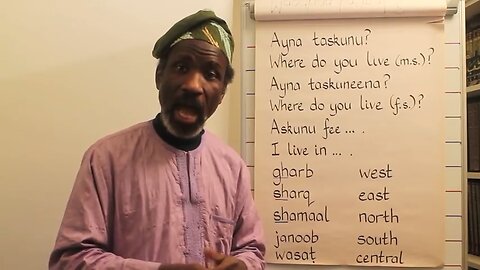 Ayna taskunu?
Where do you live (m.s.)?
Ayna taskuneena?
Where do you live (f.s.)?
Askunu fee ... .
I live in ... .
gharb west
sharq east
shamaal north
janoob south
wasat central